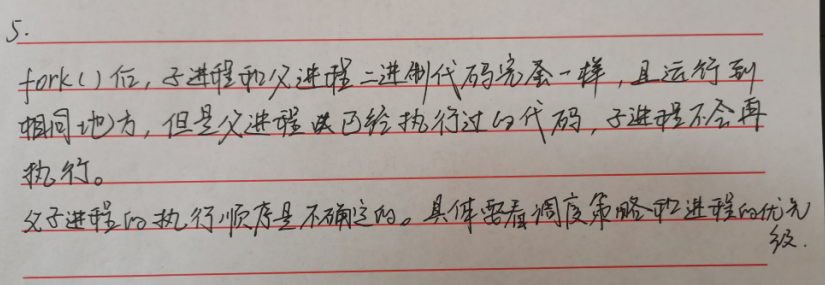 5.
fork()后，子进程和父进程二进制代码完全一样，且运行到
相同地方，但是父进程已经执行过的代码，子进程不会再
执行。
父子进程的执行顺序是不确定的。具体要看调度策略和进程的优先
级.